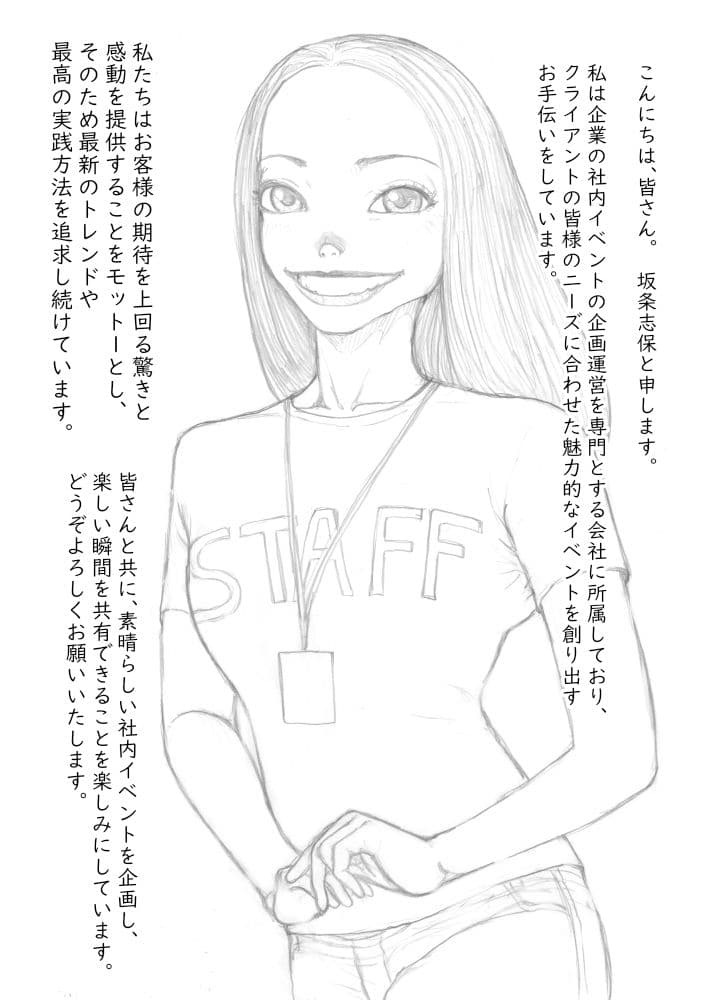 こんにちは、皆さん。　坂条志保と申します。
私は企業の社内イベントの企画運営を専門とする会社に所属しており、
クライアントの皆様のニーズに合わせた魅力的なイベントを創り出す
お手伝いをしています。
私たちはお客様の期待を上回る驚きと
感動を提供することをモットーとし、
そのため最新のトレンドや
最高の実践方法を追求し続けています。
皆さんと共に、素晴らしい社内イベントを企画し、
楽しい瞬間を共有できることを楽しみにしています。
どうぞよろしくお願いいたします。
STAFF